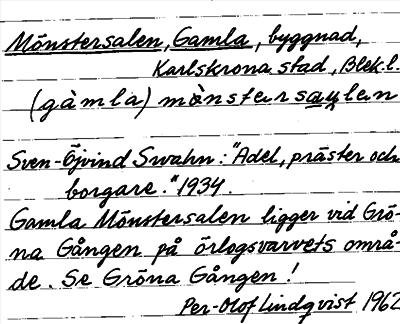 Mönstersalen, Gamla, byggnad,
Karlskrona stad, Blek.l.
(gàmla) mò̀nstarsaulan
Sven-Öjvind Swahn: "Adel, präster och
borgare." 1934.
Gamla Mönstersalen ligger vid Grö-
na Gången på örlogsvarvets områ-
de. Se Gröna Gången!
Per-Olof Lindqvist 1962